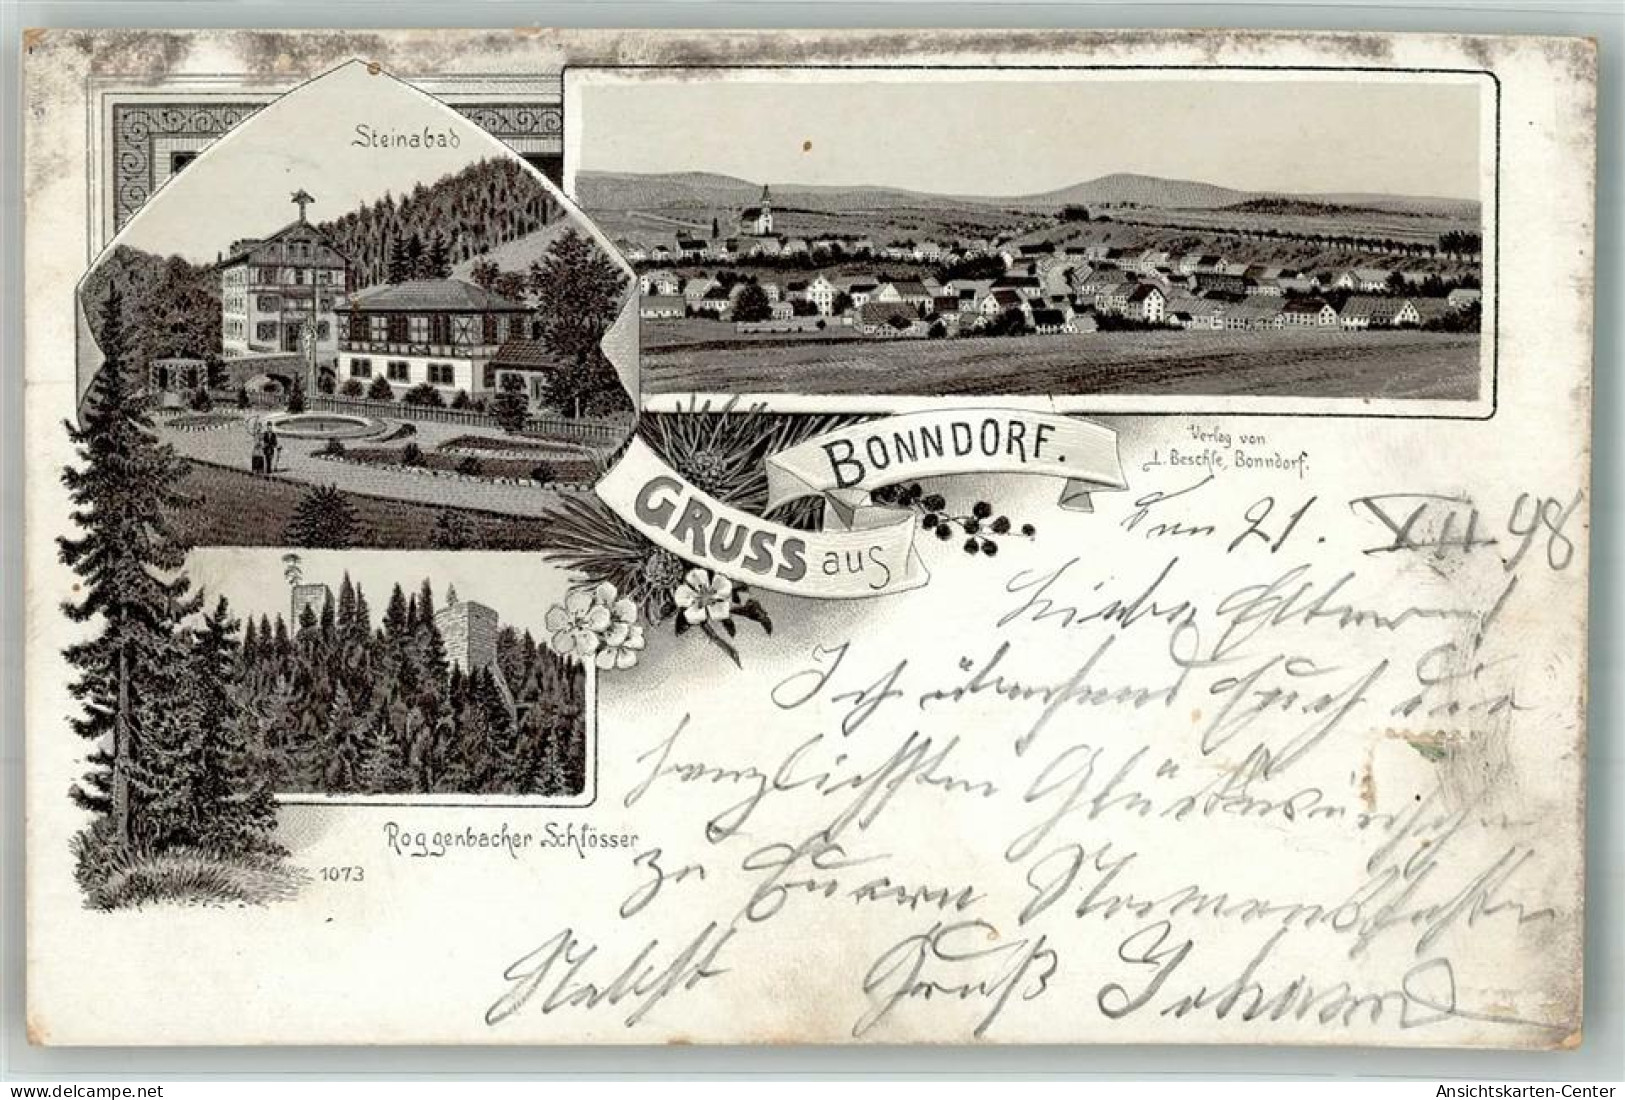 Steinabad
BONNDORF.
GRUSS aus
Verlag von
L. Beschle, Bonndorf.
Roggenbacher Schlösser
1073
Den 21. XII 98
Liebe Eltern!
Ich übersend Euch die
herzlichsten Glückwünsche
zu Euern Namensfeste
Nebst Gruß Johann
www.delcampe.net
Ansichtskarten-Center